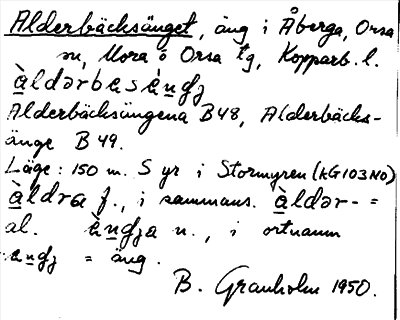 Alderbäcksänget, äng i Åberga, Orsa
sn, Mora o Orsa tg, Kopparb. l.
àldərbɛsɛ̀ŋdʒ
Alderbäcksängena B48, Alderbäcks-
änge B49.
Läge: 150 m. S yr i Stormyren (KG103NO)
àldra f., i sammans. àldər- =
al. ɛ̀ŋdʒa n., i ortnamn
ɛŋdʒ = äng.
B. Granholm 1950.